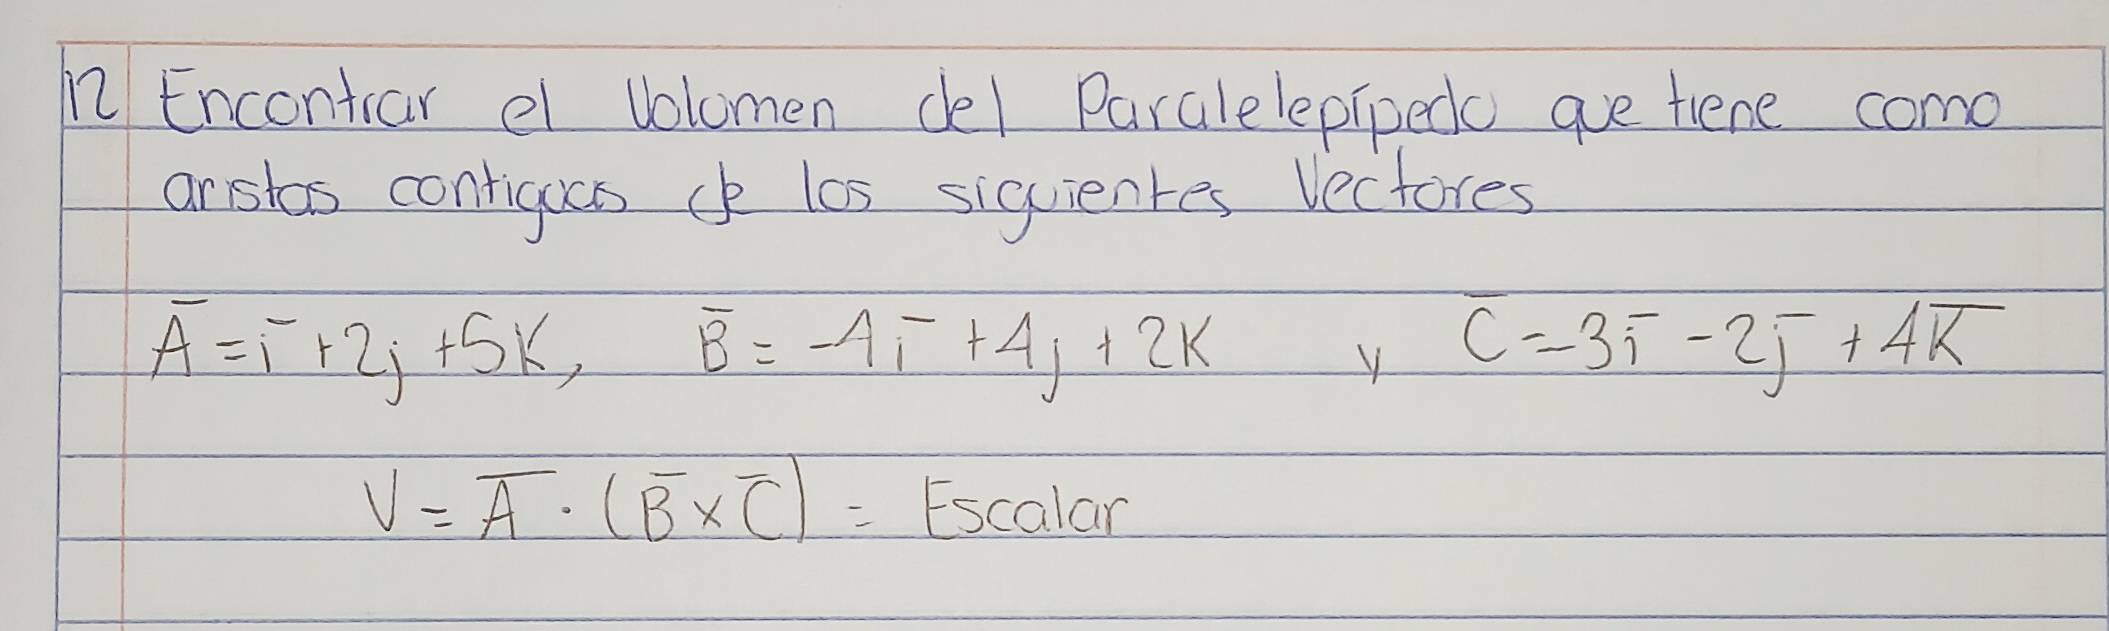 12 Encontrar el Volomen del Paralelepípedo que tiene como
aristas contiguas de los siguientes Vectores
A̅ = i̅ + 2j + 5K, B̅ = -4i̅ + 4j + 2K y C̅ = 3i̅ - 2j̅ + 4K̅
V = A̅ · (B̅ x C̅) = Escalar